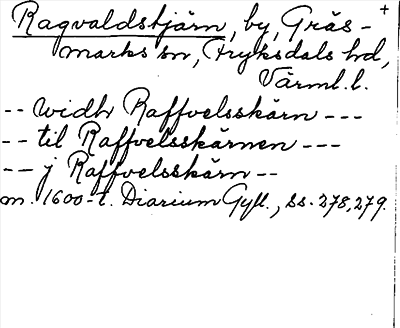 Ragvaldstjärn, by, Gräs- +
marks sn, Fryksdals hd,
Värml. l.
-- widh Raffvelsskärn ---
-- til Raffvelsskärnen ---
-- j Raffvelsskärn --
m. 1600-t. Diarium Gyll., ss. 278, 279.